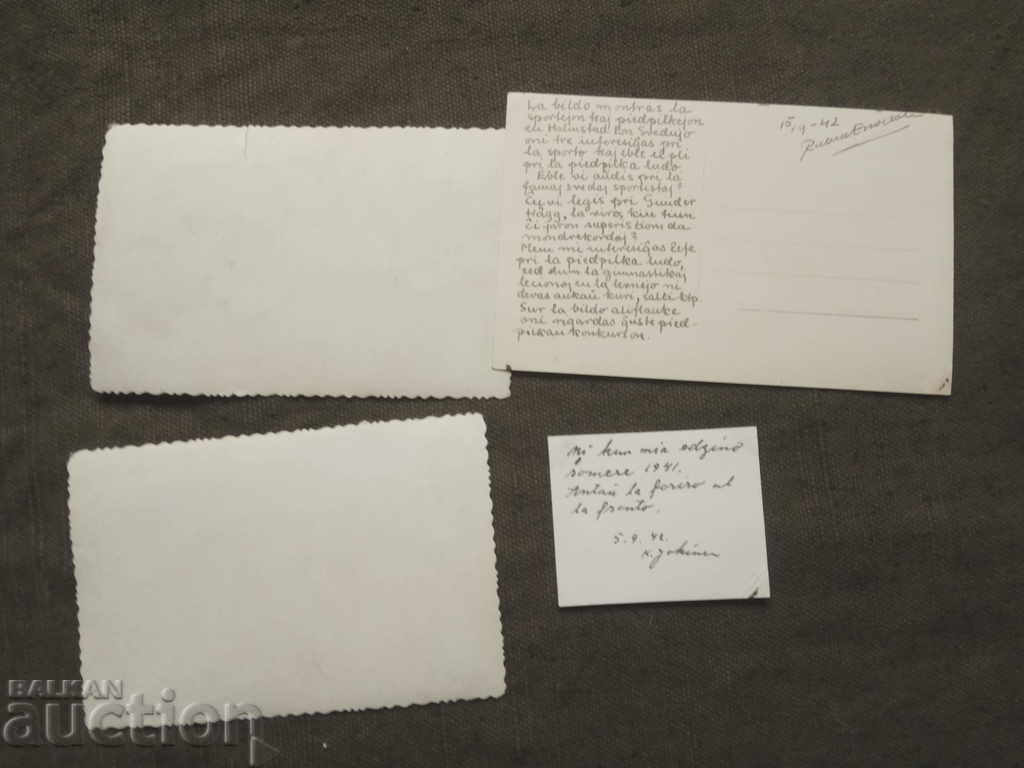 La bildo montras la
sportejon kaj piedpilkejon
en Halmstad. En Svedujo
oni tre interesiĝas pri
la sporto kaj eble el pli
pri la piedpilka ludo.
Eble vi aŭdis pri la
famaj svedaj sportistoj?
Ĉu vi legis pri Gunder
Hägg, la viro, kiu tiun
ĉi jaron superis tiom da
mondrekordoj?
Mem mi interesiĝas
pri la piedpilka ludo,
sed dum la gimnastikaj
lecionoj en la lernejo ni
devas ankaŭ kuri, salti ktp.
Sur la bildo aliflanke
oni rigardas ĝuste pied-
pilkan konkurson.
15/9-42
Mi kun mia edzino
somere 1941.
Antaŭ la foriro al
la fronto.
5.9.42.
K. Jokinen
BALKAN
auction